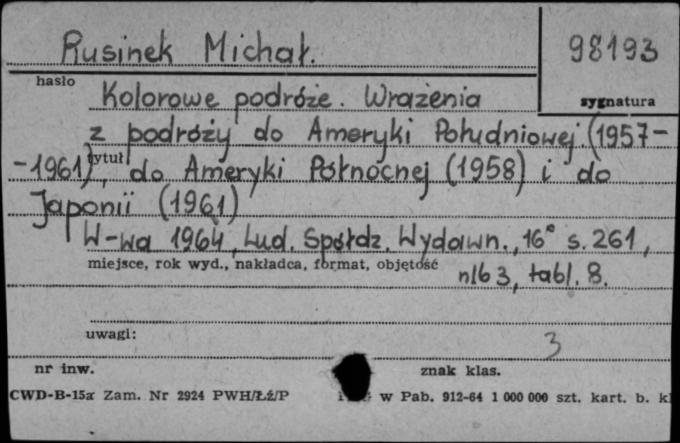 Rusinek Michał. 98193
hasło
sygnatura
Kolorowe podróże. Wrażenia
z podróży do Ameryki Południowej (1957-
-1961), do Ameryki Północnej (1958) i do
tytuł
Japonii (1961)
W-wa 1964, Lud. Spółdz. Wydawn., 16° s. 261,
miejsce, rok wyd., nakładca, format, objętość
nlb 3, tabl. 8.
uwagi:
3
nr inw. znak klas.
CWD-B-15a Zam. Nr 2924 PWH/Łź/P w Pab. 912-64 1 000 000 szt. kart. b. kl